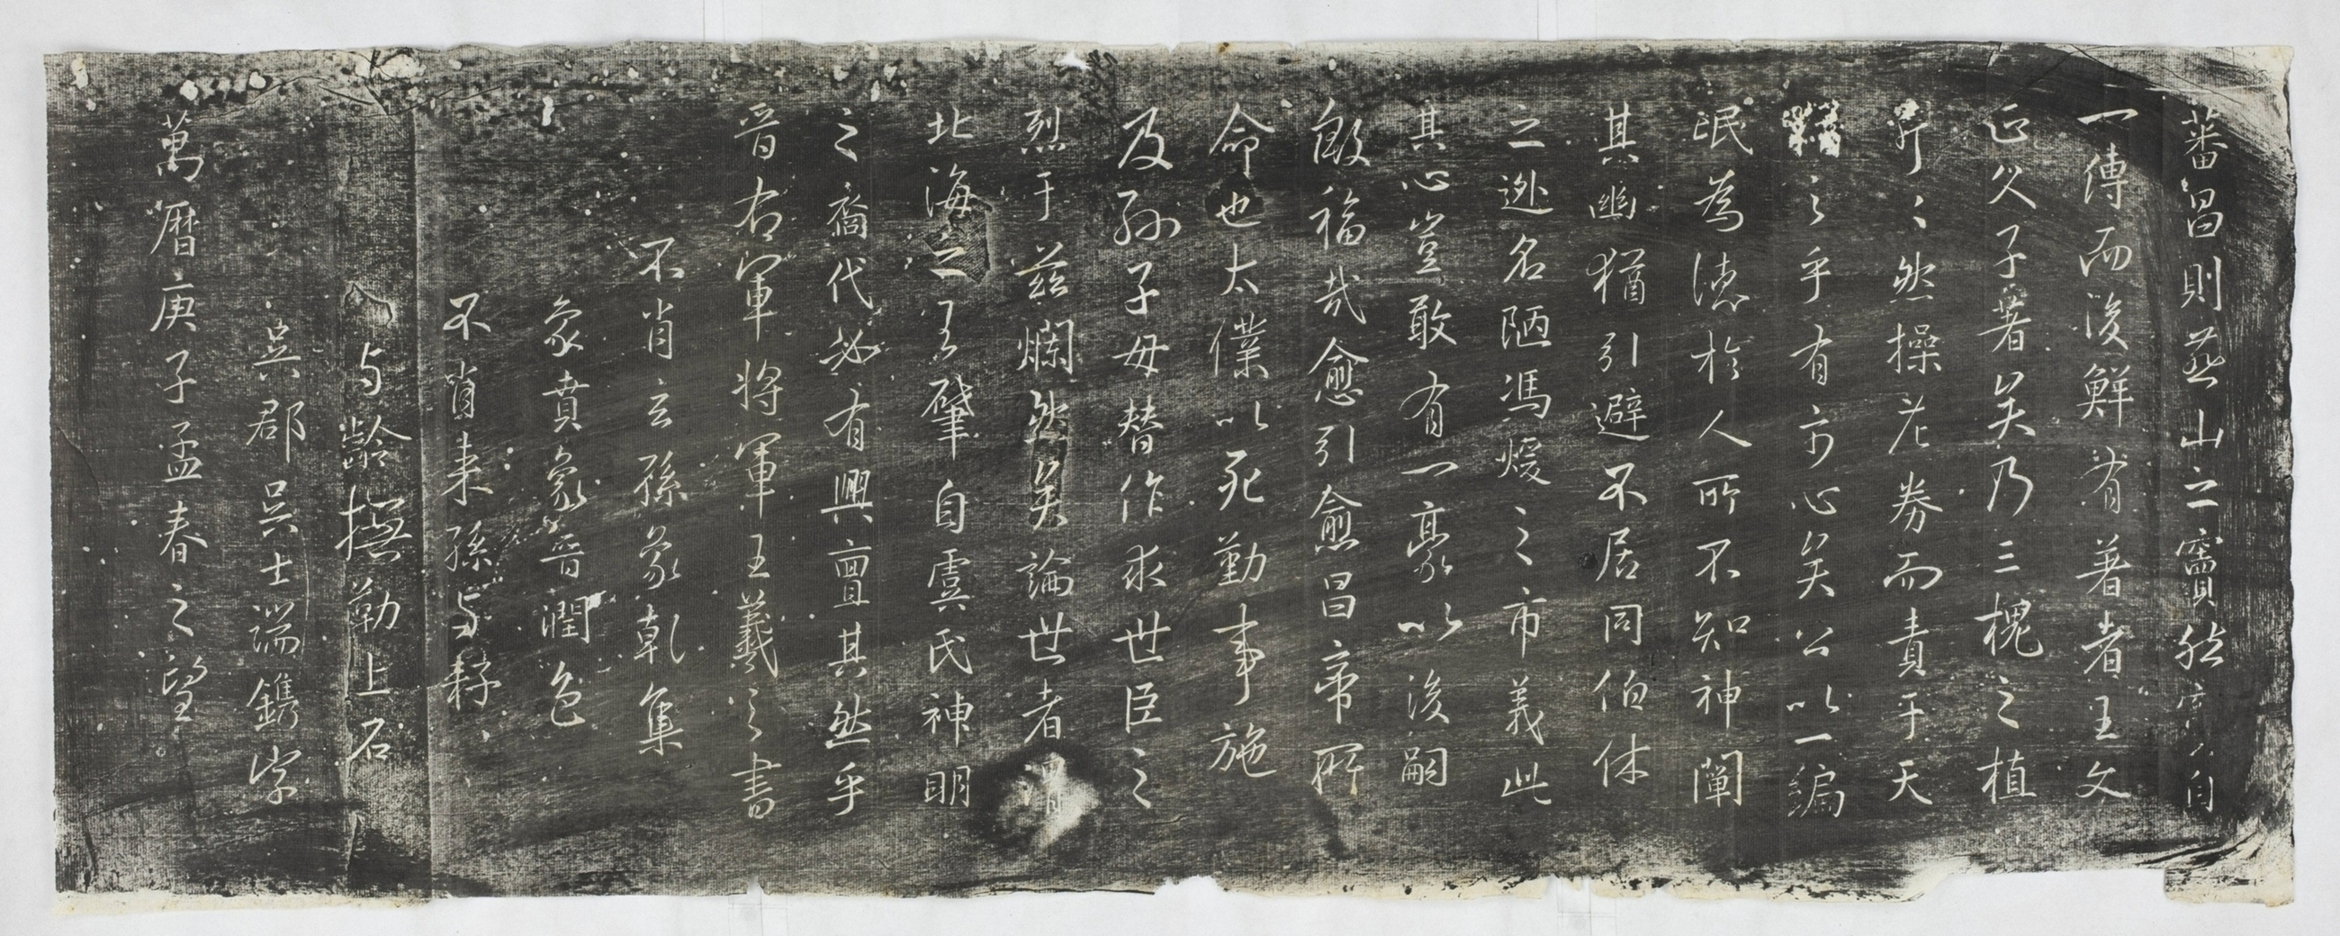 蕃昌則燕山之竇然
一傳而後鮮有著者王文
正父子著矣乃三槐之植
斤〻然操左券而責乎天
之乎有方心矣公以一編
氓為德於人所不知神闡
其幽猶引避不居同伯休
之逃名陋馮煖之市義此
其心豈敢有一豪以後嗣
徼福哉愈引愈昌帝所
命也太僕以死勤事施
及孫子毋替作求世臣之
烈于茲爛然矣論世者謂
北海之王肇自虞氏神明
之裔代必有興亶其然乎
晉右軍將軍王羲之書
不肖玄孫象乾集
象賁象晉潤色
不肖耒孫与籽
与齡撫勒上石
吳郡吳士端鐫字
萬曆庚子孟春之望